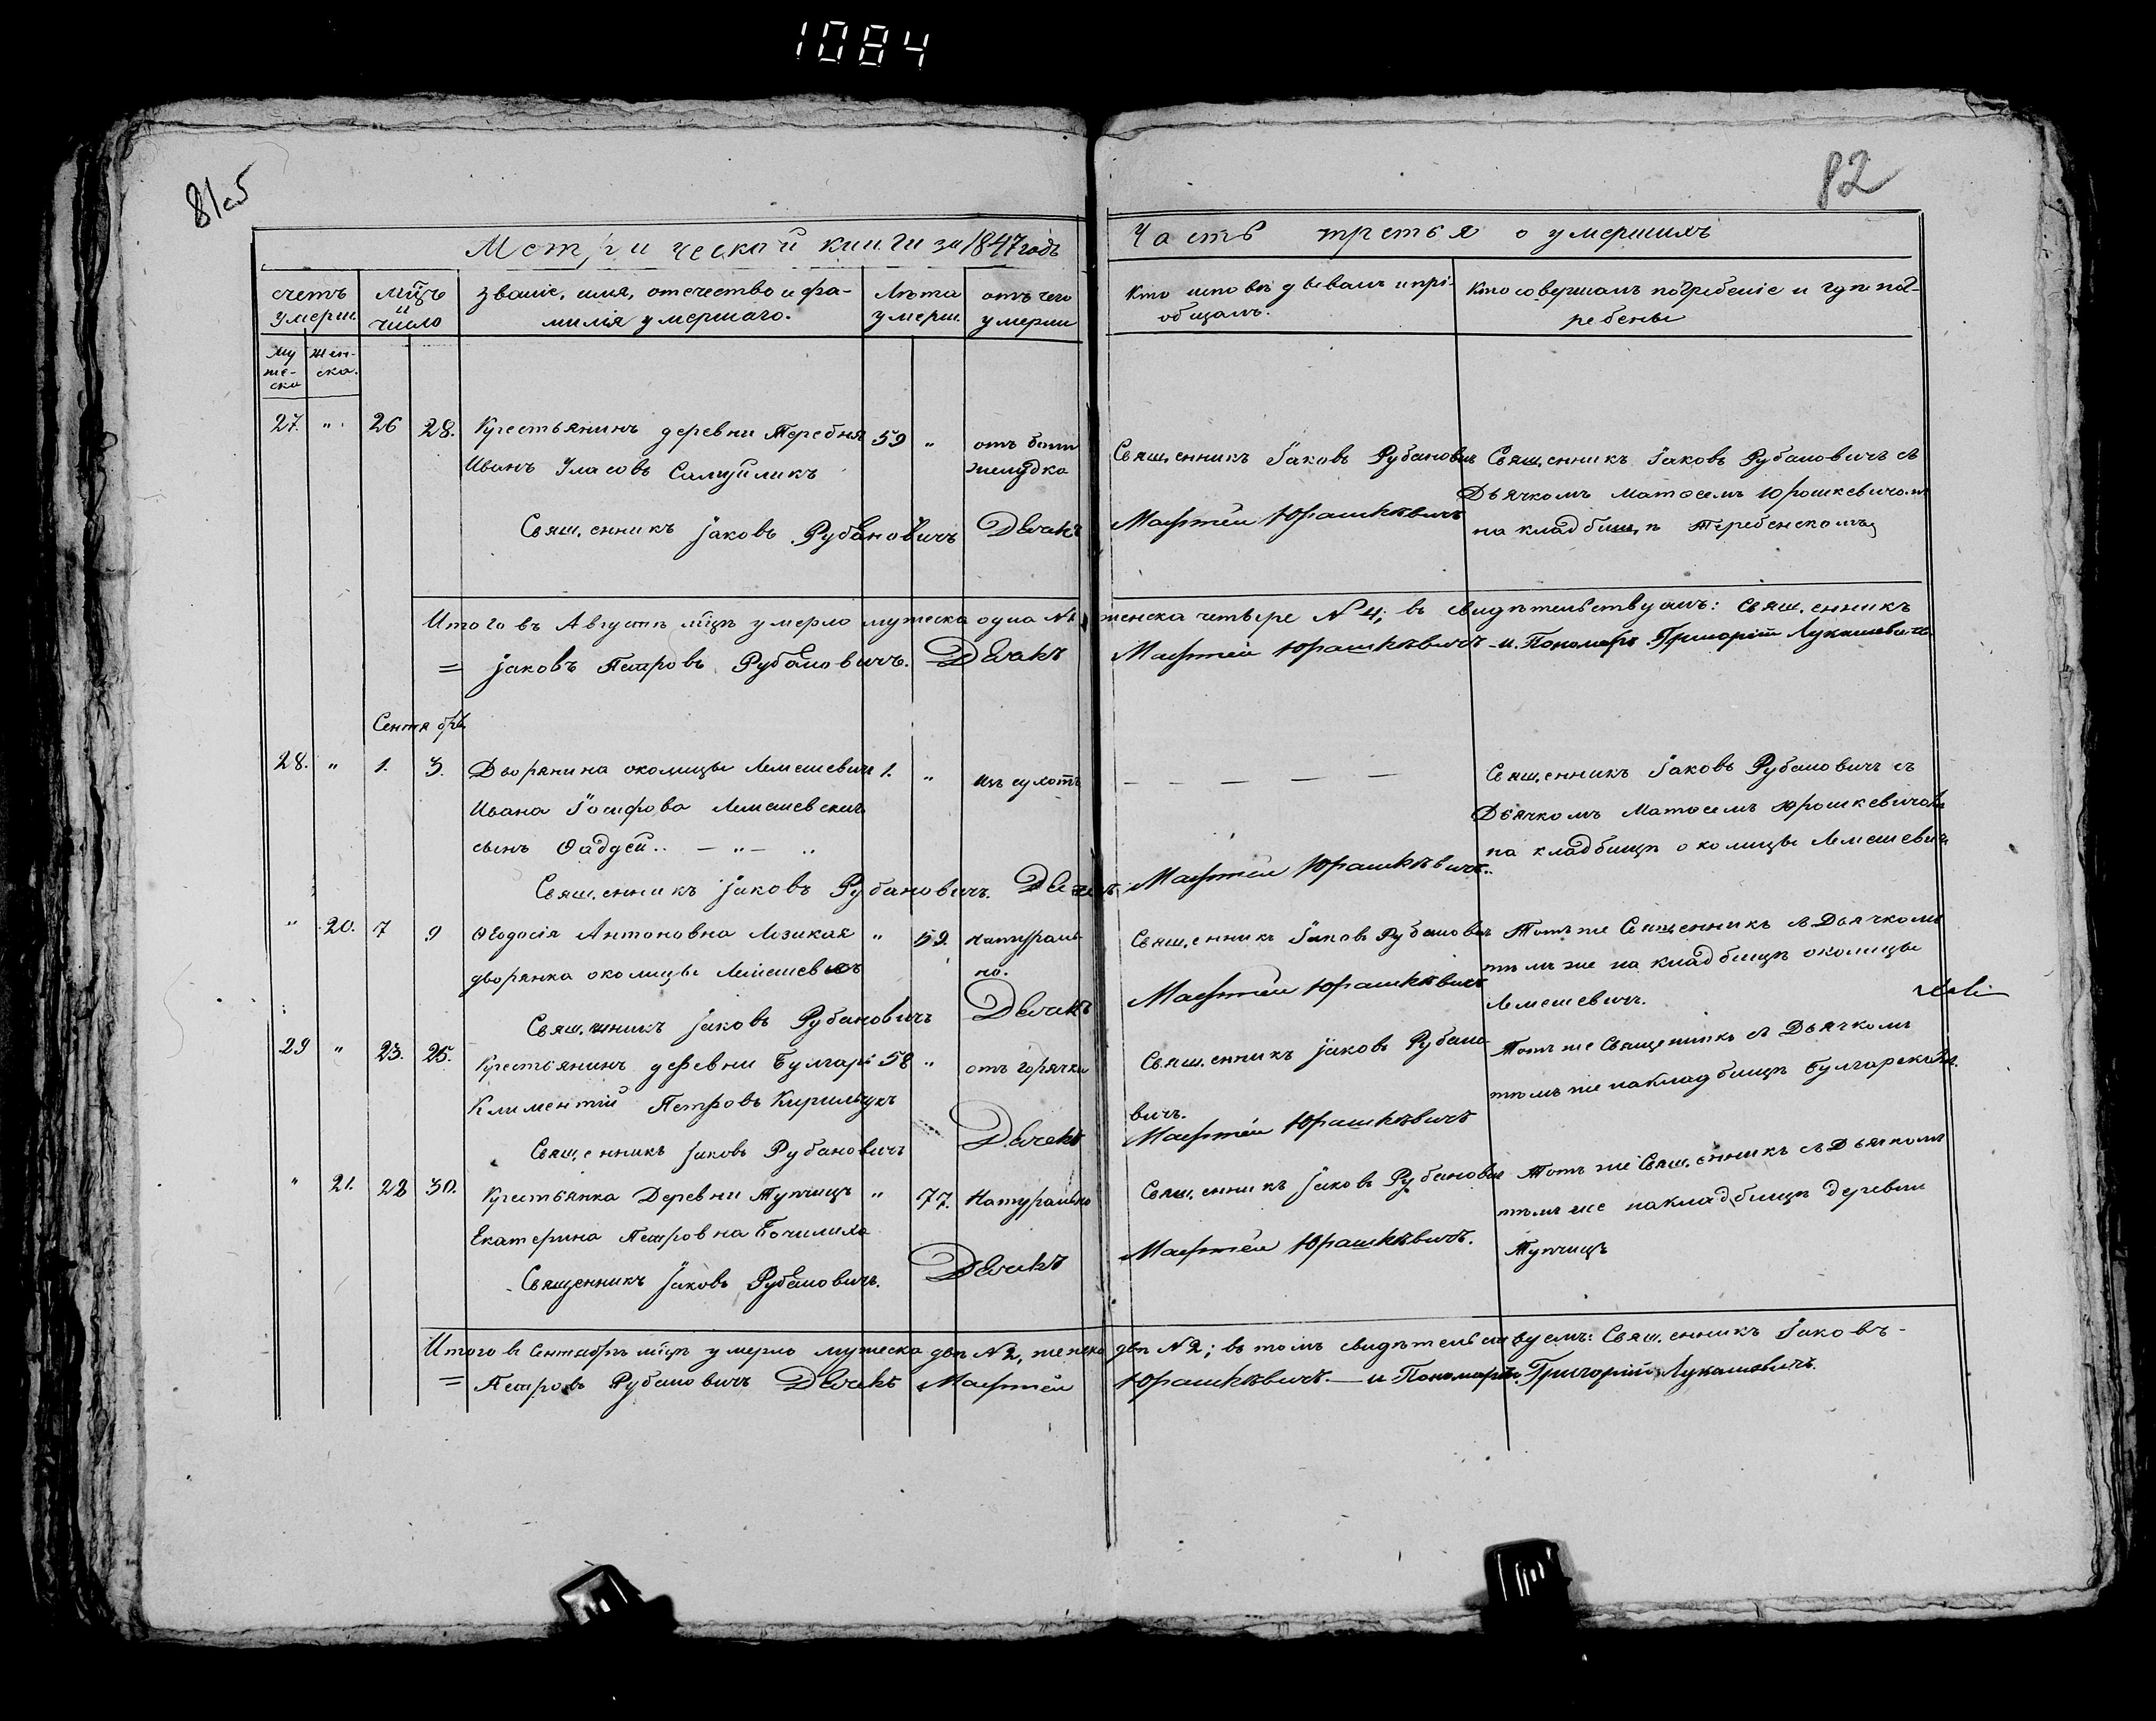 1084
81об
82
Метрической книги за 1847 годъ
Часть третья о умершихъ
счетъ умерш.
мцъ и число
званіе, имя, отечество и фамилія умершаго.
Лѣта умерш.
отъ чего умерли
Кто исповѣдывалъ и пріобщалъ.
Кто совершалъ погребеніе и гдѣ погребены
Мужеска
женска.
27. " 26 28. Крестьянинъ деревни Теребня 59 " отъ боли
Иванъ Уласовъ желудка
Священникъ Іаковъ Рубановичъ Дьячекъ
Священникъ Іаковъ Рубановичъ
Матѳей Юрашкѣвичъ
Священникъ Іаковъ Рубановичъ съ
Дьячкомъ Матѳеемъ Юрошкевичомъ
на кладбищѣ Теребенскомъ
Итого въ Августѣ мцѣ умерло мужеска одна №1 женска четыре №4; въ свидѣтельствуемъ: Священникъ
= Іаковъ Петровъ Рубановичъ. Дьячекъ Матѳей Юрашкѣвичъ и Пономарь Григорій Лукашевичъ
Сентябрь
28. " 1. 3. Дворянина околицы Лемешевичъ 1. " изъ сухотъ
Ивана Іосифова Лемешевскаго
сынъ Фаддей.. — " — "
Священникъ Іаковъ Рубановичъ. Дьячекъ Матѳей Юрашкѣвичъ.
— — — — —
Священникъ Іаковъ Рубановичъ съ
Дьячкомъ Матѳеемъ Юрошкевичомъ
на кладбищѣ околицы Лемешевичъ
" 20. 7 9 Ѳеодосія Антоновна Лезикая " 59. натурально.
дворянка околицы Лемешевичъ
Священникъ Іаковъ Рубановичъ Дьячекъ
Священникъ Іаковъ Рубановичъ
Матѳей Юрашкѣвичъ
Тотъ же Священникъ съ Дьячкомъ
тѣмъ же на кладбищѣ околицы
Лемешевичъ.
29 " 23. 25. Крестьянинъ деревни Булгари 58 " отъ горячки
Климентій Петровъ Кирильчукъ
Священникъ Іаковъ Рубановичъ Дьячекъ
Священникъ Іаковъ Рубановичъ.
Матѳей Юрашкѣвичъ
Тотъ же Священникъ съ Дьячкомъ
тѣмъ же на кладбищѣ Булгарскомъ.
" 21. 28 30. Крестьянка Деревни Тупчицъ " 77. Натурально
Екатерина Петровна Бочилиха
Священникъ Іаковъ Рубановичъ. Дьячекъ
Священникъ Іаковъ Рубановичъ
Матѳей Юрашкѣвичъ.
Тотъ же Священникъ съ Дьячкомъ
тѣмъ же на кладбищѣ деревни
Тупчицъ
Итого въ Сентябрѣ мцѣ умерло мужеска двѣ №2, женска двѣ №2; въ томъ свидѣтельствуемъ: Священникъ Іаковъ
= Петровъ Рубановичъ Дьячекъ Матѳей Юрашкѣвичъ. — и Пономарь Григорій Лукашевичъ.